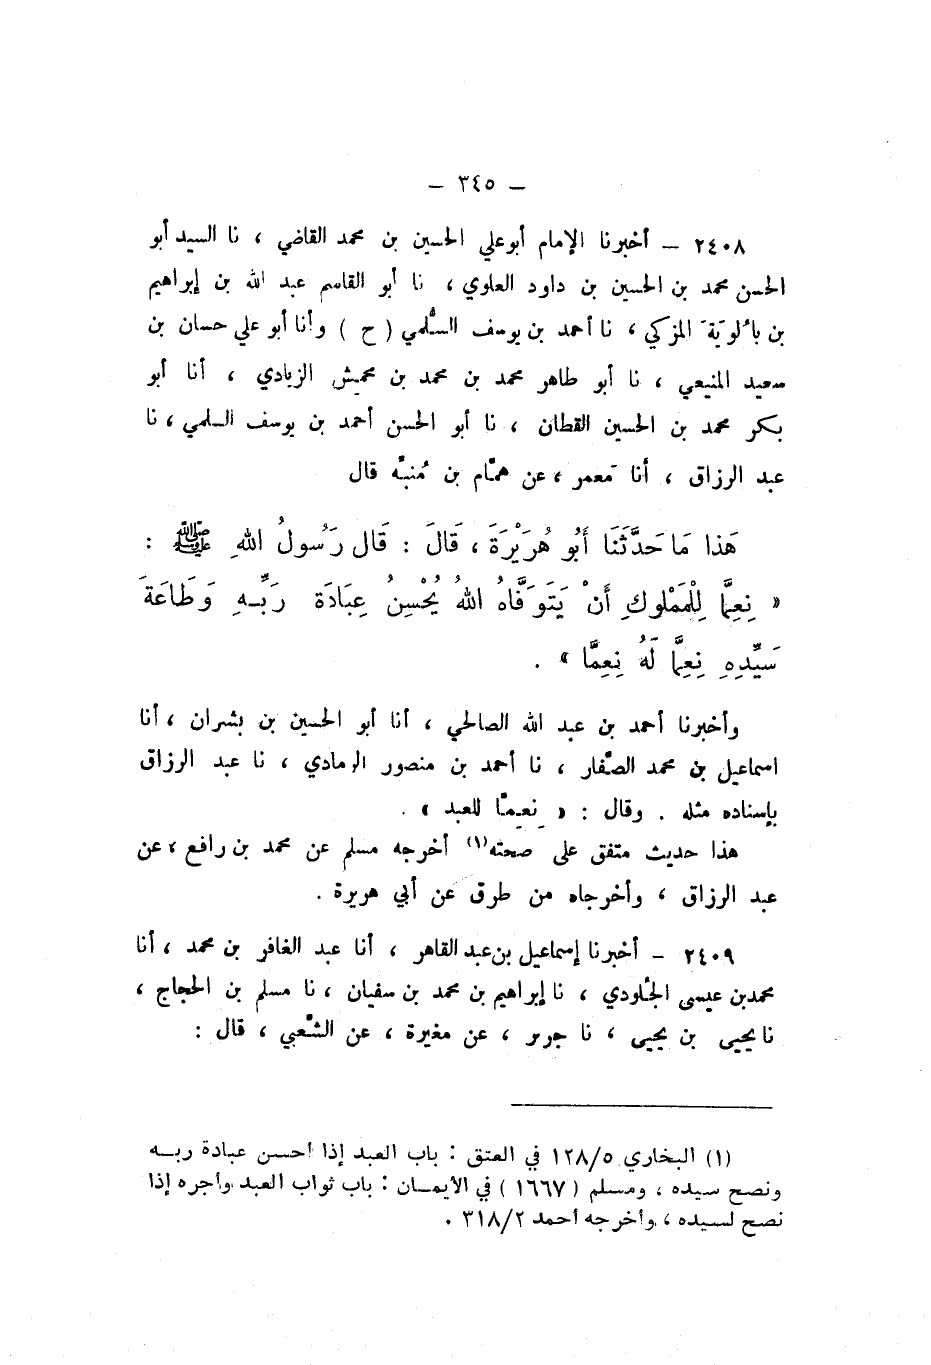 – ٣٤٥ –
٢٤٠٨ – أخبرنا الإمام أبو علي الحسين بن محمد القاضي ، نا السيد أبو
الحسن محمد بن الحسين بن داود العلوي ، نا أبو القاسم عبد الله بن إبراهيم
بن بالُويَةَ المزكي ، نا أحمد بن يوسف السُّلمي ( ح ) وأنا أبو علي حسان بن
سعيد المنيعي ، نا أبو طاهر محمد بن محمد بن محمش الزيادي ، أنا أبو
بكر محمد بن الحسين القطان ، نا أبو الحسن أحمد بن يوسف السلمي ، نا
عبد الرزاق ، أنا مَعمر ، عن همّام بن مُنبّه قال
هَذا مَا حَدَّثَنَا أَبُو هُرَيْرَةَ ، قَالَ : قَال رَسُولُ اللهِ ﷺ :
« نِعِمَّا لِلْمَمْلُوكِ أَنْ يَتَوَفَّاهُ اللهُ يُحْسِنُ عِبَادَة رَبِّهِ وَطَاعَةَ
سَيِّدِهِ نِعِمَّا لَهُ نِعِمَّا » .
وأخبرنا أحمد بن عبد الله الصالحي ، أنا أبو الحسين بن بشران ، أنا
اسماعيل بن محمد الصّفار ، نا أحمد بن منصور الرمادي ، نا عبد الرزاق
بإسناده مثله . وقال : « نِعِمَّا للعبد » .
هذا حديث متفق على صحته(١) أخرجه مسلم عن محمد بن رافع ، عن
عبد الرزاق ، وأخرجاه من طرق عن أبي هريرة .
٢٤٠٩ – أخبرنا إسماعيل بن عبد القاهر ، أنا عبد الغافر بن محمد ، أنا
محمد بن عيسى الجُلودي ، نا إبراهيم بن محمد بن سفيان ، نا مسلم بن الحجاج ،
نا يحيى بن يحيى ، نا جرير ، عن مغيرة ، عن الشّعبي ، قال :
(١) البخاري ١٢٨/٥ في العتق : باب العبد إذا أحسن عبادة ربه
ونصح سيده ، ومسلم ( ١٦٦٧ ) في الأيمان : باب ثواب العبد وأجره إذا
نصح لسيده ، وأخرجه أحمد ٣١٨/٢ .